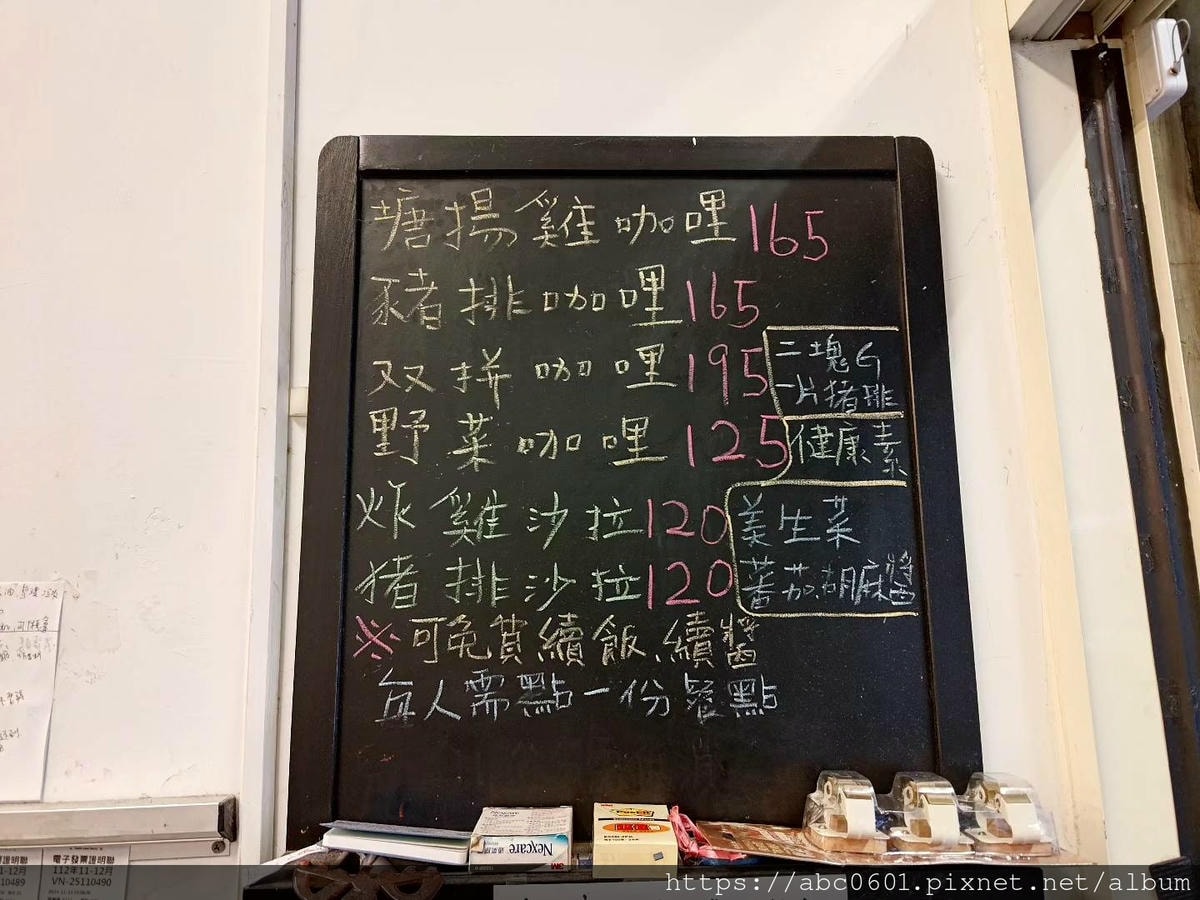 塘揚雞咖哩165
豬排咖哩165
双拼咖哩195
二塊G
一片猪排
野菜咖哩125
健康素
炸雞沙拉120
美生菜
猪排沙拉120
蕃茄.胡麻醬
※可免費續飯、續醬
每人需點一份餐點
Nexcare
3M
電子發票證明聯
112年11-12月
VN-25110490
證明聯
1-12月
10489
https://abc0601.pixnet.net/album